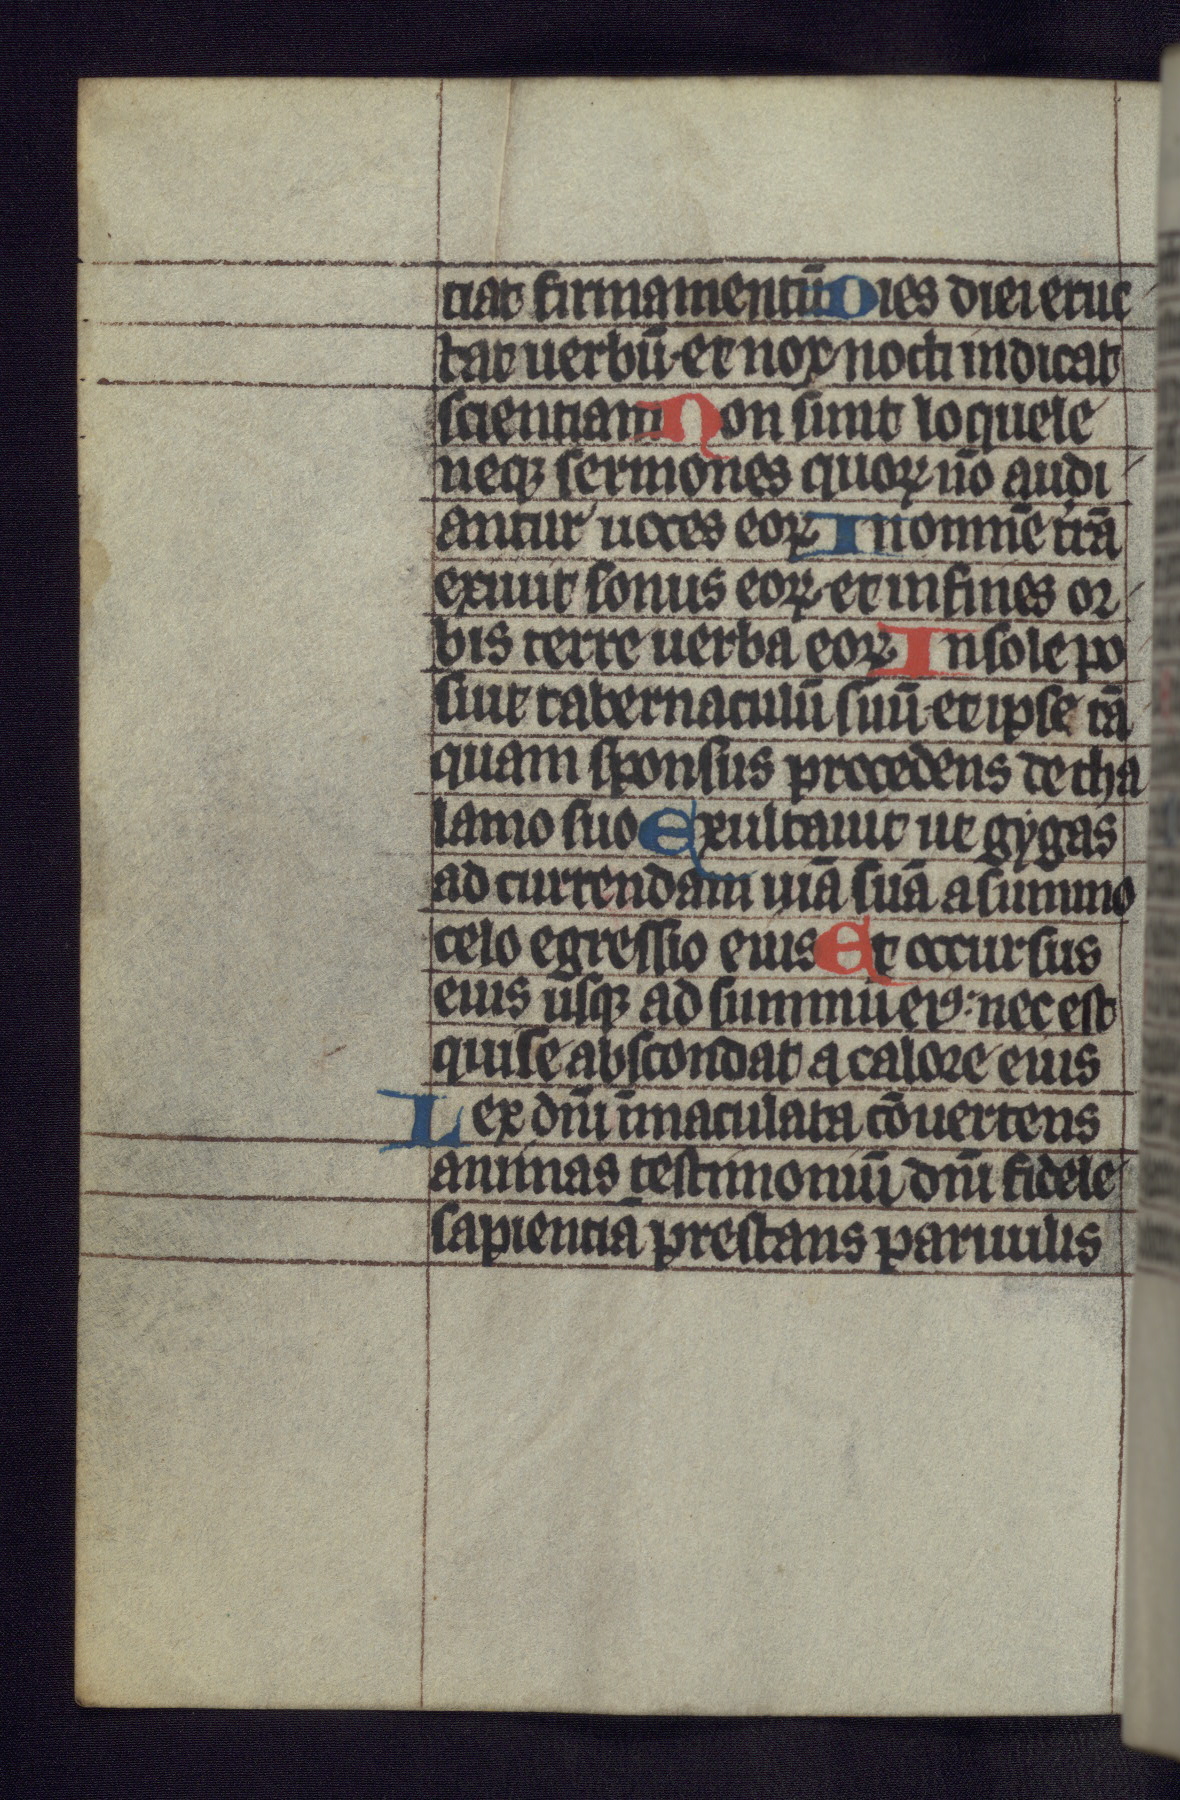 tiat firmamentū Dies diei eruc
tat uerbū · et nox nocti indicat
scientiam Non sunt loquele
neqꝫ sermones quoꝝ nō audi
antur uoces eoꝝ In omnē trā
exiuit sonus eoꝝ · et in fines or
bis terre uerba eoꝝ In sole po
suit tabernaculū suū · et ipse tā
quam sponsus procedens de tha
lamo suo Exultauit ut gygas
ad currendam uiā suā a summo
celo egressio eius Et occursus
eius usqꝫ ad summū eiꝰ : nec est
qui se abscondat a calore eius
Lex dn̄i īmaculata cōuertens
animas testimoniū dn̄i fidele
sapientiā prestans paruulis